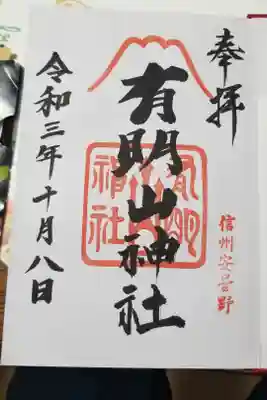 奉拝
信州安曇野
有明山神社
有明山神社
令和三年十月八日